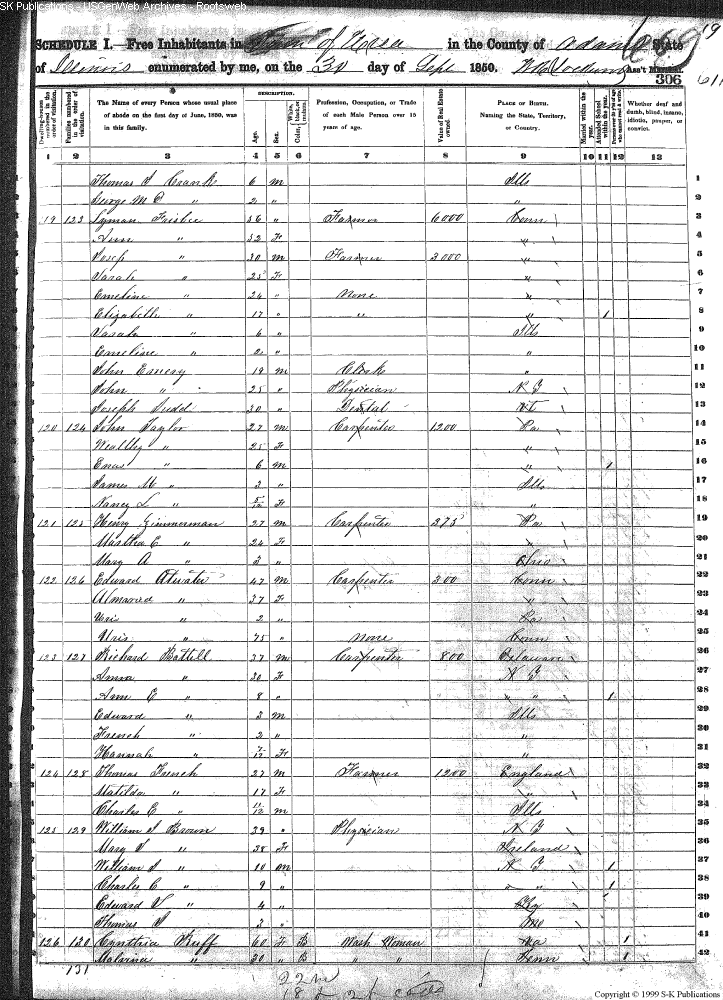 SK Publications - USGenWeb Archives - Rootsweb
SCHEDULE I.—Free Inhabitants in Town of in the County of Adams State
of Illinois enumerated by me, on the 30 day of Sept 1850. Ass't Marshal.
306
Dwelling-houses numbered in the order of visitation.
Families numbered in the order of visitation.
The Name of every Person whose usual place of abode on the first day of June, 1850, was in this family.
DESCRIPTION.
Age.
Sex.
Color, White, black, or mulatto.
Profession, Occupation, or Trade of each Male Person over 15 years of age.
Value of Real Estate owned.
PLACE OF BIRTH. Naming the State, Territory, or Country.
Married within the year.
Attended School within the year.
Persons over 20 y'rs of age who cannot read & write.
Whether deaf and dumb, blind, insane, idiotic, pauper, or convict.
1 2 3 4 5 6 7 8 9 10 11 12 13
Thomas 6 m Ills 1
George M C " 2 " " 2
19 123 Lyman Frisbee 36 " Farmer 6000 Conn 3
Ann " 32 F " 4
" 30 m Farmer 3000 " 5
Sarah " 25 F " 6
Emeline " 24 " None " 7
Elizabeth " 17 " " " 1 8
Sarah " 6 " Ills 9
Emeline " 2 " " 10
John Emery 19 m Clerk " 11
John " 25 " Physician N 12
Joseph Judd 30 " Vt 13
120 124 John Taylor 27 m Carpenter 1200 Pa 14
Wealthy " 25 F " 15
" 6 m " 1 16
James M " 3 " Ills 17
Nancy L " 5/12 F " 18
121 125 Henry Zimmerman 27 m Carpenter 375 Pa 19
Martha E " 24 F " 20
Mary A " 2 " Ohio 21
122 126 Edward Atwater 47 m Carpenter 300 Conn 22
" 37 F " 23
Uris " 2 " Pa 24
Uris " 75 " None Conn 25
123 127 Richard Battell 37 m Carpenter 800 Delaware 26
Anna " 30 F N 27
Ann E " 8 " " " 1 28
Edward " 3 m Ills 29
French " 2 " " 30
Hannah " 7/12 F " 31
124 128 Thomas French 27 m Farmer 1200 England 32
Matilda " 17 F " 33
Charles E " 11/12 m Ills 34
125 129 William Brown 39 " Physician N 35
Mary " 38 F Ireland 36
William " 10 m N 1 37
Charles C " 9 " " " 1 38
Edward " 4 " 39
Thomas 2 " Mo 40
126 130 Cynthia Ruff 60 F B Wash Woman Va 1 41
Malvina " 30 " B " " Tenn 1 42
131
Copyright © 1999 S-K Publications